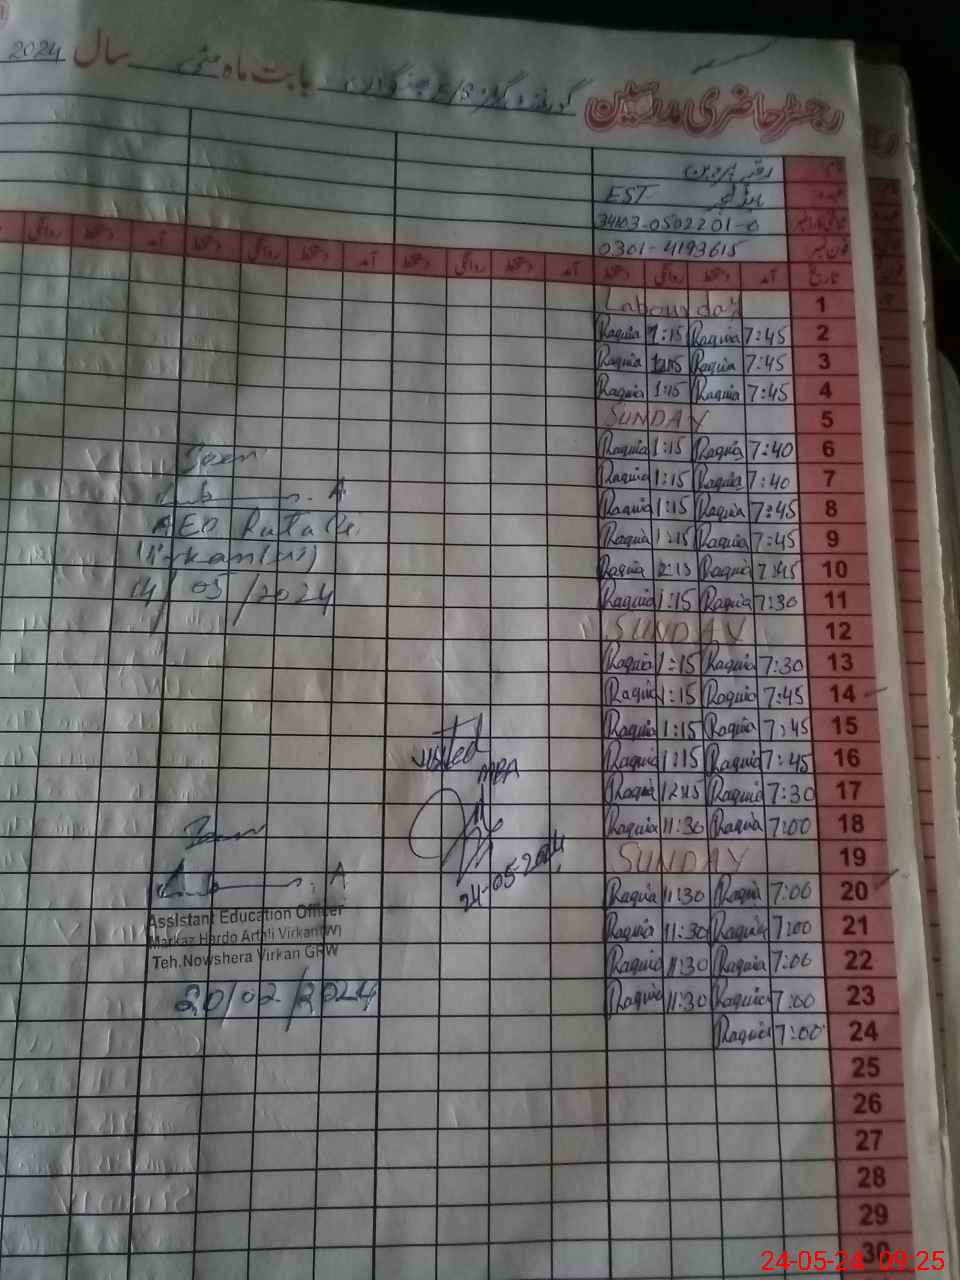 رجسٹر حاضری مدرسین
بابت ماہ مئی سال 2024
نام رقیہ پروین
عہدہ ہیڈ ٹیچر EST
34103-0502201-0
فون نمبر 0301-4193615
تاریخ آمد دستخط روانگی دستخط آمد دستخط روانگی دستخط آمد دستخط روانگی دستخط آمد دستخط روانگی
1 Labour day
2 7:45 Raquia 1:15 Raquia
3 7:45 Raquia Raquia
4 7:45 Raquia 1:15 Raquia
5 SUNDAY
6 7:40 Raquia 1:15 Raquia
7 7:40 Raquia 1:15 Raquia
8 7:45 Raquia 1:15 Raquia
9 7:45 Raquia 1:15 Raquia
10 7:45 Raquia Raquia
11 7:30 Raquia 1:15 Raquia
12 SUNDAY
13 7:30 Raquia 1:15 Raquia
14 7:45 Raquia 1:15 Raquia
15 7:45 Raquia 1:15 Raquia
16 7:45 Raquia 1:15 Raquia
17 7:30 Raquia 12:15 Raquia
18 7:00 Raquia 11:30 Raquia
19 SUNDAY
20 7:00 Raquia 11:30 Raquia
21 7:00 Raquia 11:30 Raquia
22 7:00 Raquia 11:30 Raquia
23 7:00 Raquia 11:30 Raquia
24 7:00 Raquia
25
26
27
28
29
30
visited
MPA
24-05-2024
Seen
A
AEO
Virkan (W)
14/05/2024
Seen
A
Assistant Education Officer
Markaz Hardo Artali Virkan(W)
Teh.Nowshera Virkan GRW
20/02/2024
24-05-24 09:25